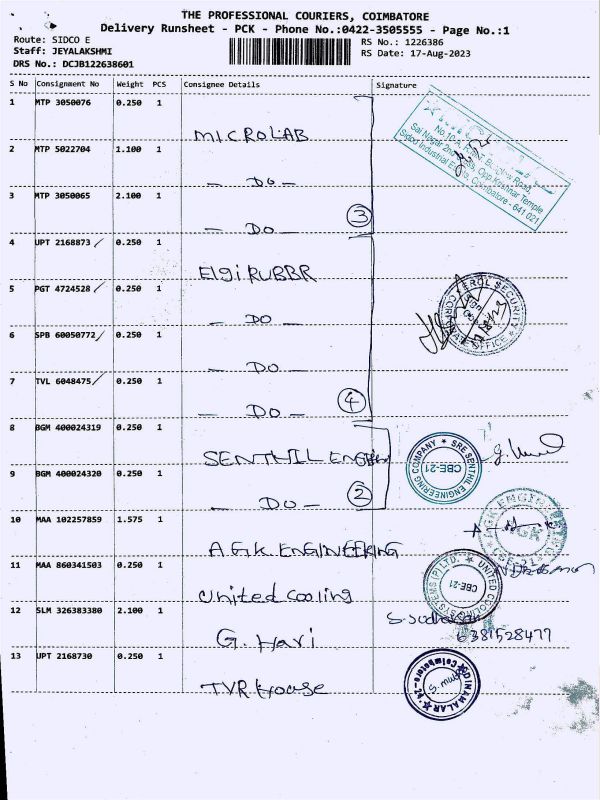 THE PROFESSIONAL COURIERS, COIMBATORE
Delivery Runsheet - PCK - Phone No.:0422-3505555 - Page No.:1
Route: SIDCO E
Staff: JEYALAKSHMI
DRS No.: DCJB122638601
RS No.: 1226386
RS Date: 17-Aug-2023
S No Consignment No Weight PCS Consignee Details Signature
1 MTP 3050076 0.250 1 MICROLAB
2 MTP 5022704 1.100 1 - DO -
3 MTP 3050065 2.100 1 - DO - 3
No.10-A,
Sai Nagar 2nd Opp. Krishnar Temple
Sidco Industrial Estate, Coimbatore - 641 021
4 UPT 2168873 / 0.250 1 ElgiRUBBR
5 PGT 4724528 / 0.250 1 - DO -
6 SPB 60050772 / 0.250 1 - DO -
7 TVL 6048475 / 0.250 1 - DO - 4
SECURITY
CORPORATE OFFICE
8 BGM 400024319 0.250 1 SENTHIL ENGIN
9 BGM 400024320 0.250 1 - DO - 2
SRE SENTHIL ENGINEERING COMPANY
CBE-21
10 MAA 102257859 1.575 1 A.G.K. ENGINEERING
AGK
CBE-21
11 MAA 860341503 0.250 1 United Cooling
UNITED COOLING SYSTEMS (P) LTD.
CBE-21
12 SLM 326383380 2.100 1 G. Hari
S. Sudharsan
6381528477
13 UPT 2168730 0.250 1 TVR House
DINAMALAR
Coimbatore-24